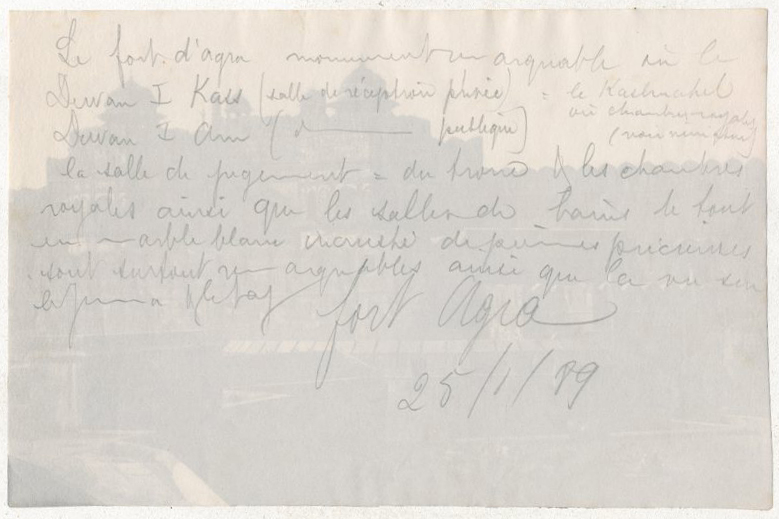 Le fort d'agra monument remarquable où le
Dewan I Kass (salle de réception privée) = le Kashmahel
ou chambres royales
Dewan I Am (d ——— publique)
(voir
la salle de jugement = du trone & les chambres
royales ainsi que les salles de bains le tout
en marble blanc incrusté de pierres précieuses
sont surtout remarquables ainsi que la vue sur
la Jumna & le Taj
fort Agra
25/1/89